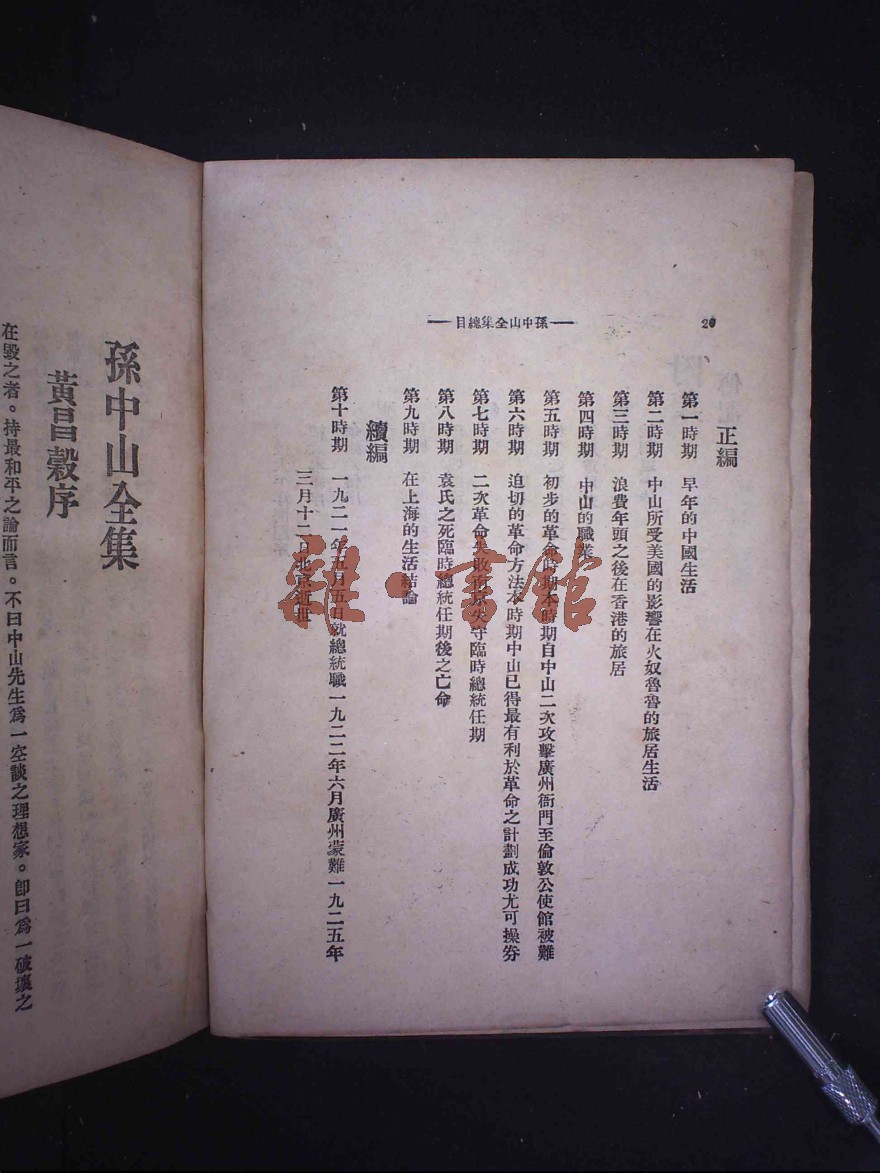 20
—孫中山全集總目—
正編
第一時期 早年的中國生活
第二時期 中山所受美國的影響在火奴魯魯的旅居生活
第三時期 浪費年頭之後在香港的旅居
第四時期 中山的職業
第五時期 初步的革命時期本時期自中山二次攻擊廣州衙門至倫敦公使館被難
第六時期 迫切的革命方法本時期中山已得最有利於革命之計劃成功尤可操券
第七時期 二次革命失敗南京失守臨時總統任期
第八時期 袁氏之死臨時總統任期後之亡命
第九時期 在上海的生活結論
續編
第十時期 一九二一年五月五日就總統職一九二二年六月廣州蒙難一九二五年
三月十二日北京逝世
孫中山全集
黃昌穀序
在毀之者。持最和平之論而言。不曰中山先生爲一空談之理想家。卽曰爲一破壞之
雜·書館